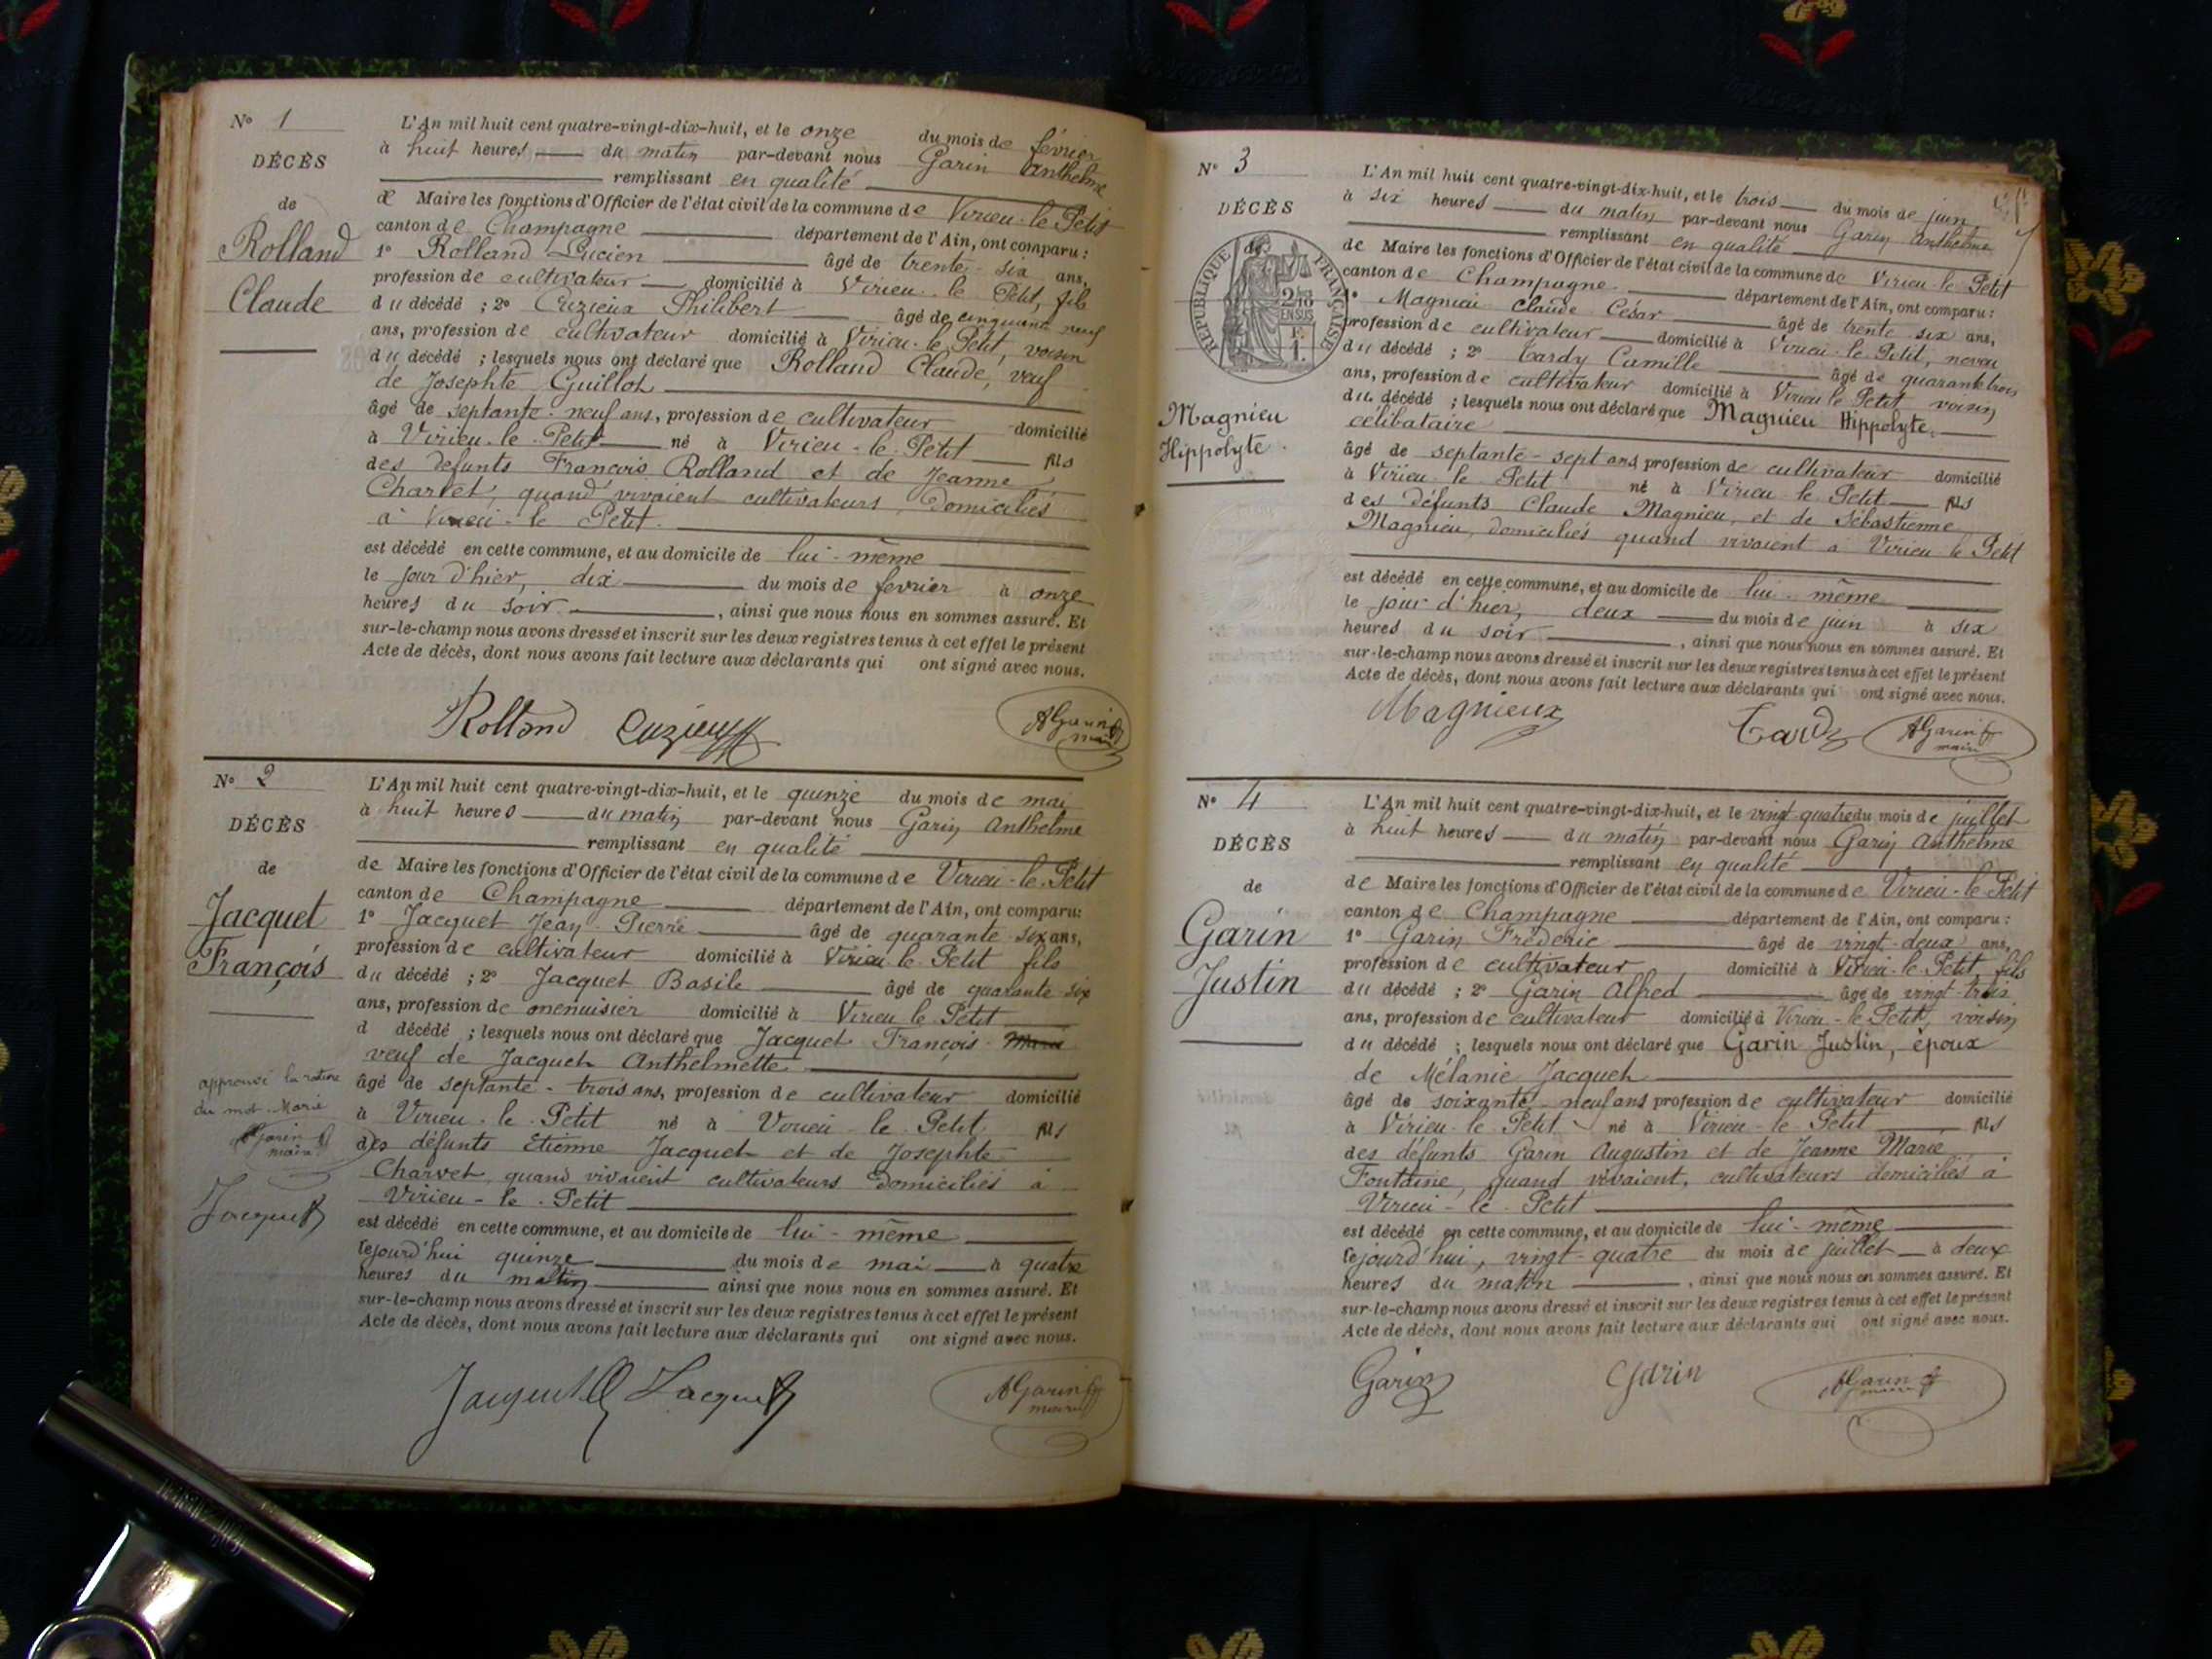 N° 1
DÉCÈS
de
Rolland
Claude
L'An mil huit cent quatre-vingt-dix-huit, et le onze du mois de février
à huit heures du matin par-devant nous Garin Anthelme
remplissant en qualité
de Maire les fonctions d'Officier de l'état civil de la commune de Virieu-le-Petit
canton de Champagne département de l'Ain, ont comparu :
1° Rolland Lucien âgé de trente-six ans,
profession de cultivateur domicilié à Virieu-le Petit, fils
du décédé ; 2° Cuzieux Philibert âgé de cinquante neuf
ans, profession de cultivateur domicilié à Virieu-le Petit, voisin
du décédé ; lesquels nous ont déclaré que Rolland Claude, veuf
de Josephte Guillot
âgé de septante-neuf ans, profession de cultivateur domicilié
à Virieu-le-Petit né à Virieu-le-Petit fils
des défunts François Rolland et de Jeanne
Charvet, quand vivaient cultivateurs, domiciliés
à Virieu-le Petit.
est décédé en cette commune, et au domicile de lui-même
le jour d'hier, dix du mois de fevrier à onze
heures du soir, ainsi que nous nous en sommes assuré. Et
sur-le-champ nous avons dressé et inscrit sur les deux registres tenus à cet effet le présent
Acte de décès, dont nous avons fait lecture aux déclarants qui ont signé avec nous.
Rolland Cuzieux AGarin
maire
N° 2
DÉCÈS
de
Jacquet
François
approuvé la rature
du mot Marié
AGarin
maire
Jacquet
L'An mil huit cent quatre-vingt-dix-huit, et le quinze du mois de mai
à huit heures du matin par-devant nous Garin Anthelme
remplissant en qualité
de Maire les fonctions d'Officier de l'état civil de la commune de Virieu-le-Petit
canton de Champagne département de l'Ain, ont comparu:
1° Jacquet Jean-Pierre âgé de quarante-six ans,
profession de cultivateur domicilié à Virieu-le-Petit fils
du décédé ; 2° Jacquet Basile âgé de quarante-six
ans, profession de menuisier domicilié à Virieu le Petit
d décédé ; lesquels nous ont déclaré que Jacquet François Marié
veuf de Jacquet Anthelmette
âgé de septante-trois ans, profession de cultivateur domicilié
à Virieu-le-Petit né à Virieu-le-Petit fils
des défunts Etienne Jacquet et de Josephte
Charvet, quand vivaient cultivateurs domiciliés à
Virieu-le-Petit
est décédé en cette commune, et au domicile de lui-même
lejourd'hui quinze du mois de mai à quatre
heures du matin ainsi que nous nous en sommes assuré. Et
sur-le-champ nous avons dressé et inscrit sur les deux registres tenus à cet effet le présent
Acte de décès, dont nous avons fait lecture aux déclarants qui ont signé avec nous.
Jacquet Jacquet AGarin
maire
N° 3
DÉCÈS
RÉPUBLIQUE FRANÇAISE
2/10
EN SUS
Magnieu
Hippolyte.
L'An mil huit cent quatre-vingt-dix-huit, et le trois du mois de juin
à six heures du matin par-devant nous Garin Anthelme
remplissant en qualité
de Maire les fonctions d'Officier de l'état civil de la commune de Virieu-le-Petit
canton de Champagne département de l'Ain, ont comparu :
1° Magnieu Claude César âgé de trente six ans,
profession de cultivateur domicilié à Virieu-le-Petit, neveu
du décédé ; 2° Tardy Camille âgé de quarante trois
ans, profession de cultivateur domicilié à Virieu le Petit voisin
du décédé ; lesquels nous ont déclaré que Magnieu Hippolyte,
célibataire
âgé de septante-sept ans profession de cultivateur domicilié
à Virieu le Petit né à Virieu le Petit fils
des défunts Claude Magnieu, et de Sébastienne
Magnieu, domiciliés quand vivaient à Virieu le Petit
est décédé en cette commune, et au domicile de lui-même
le jour d'hier, deux du mois de juin à six
heures du soir, ainsi que nous nous en sommes assuré. Et
sur-le-champ nous avons dressé et inscrit sur les deux registres tenus à cet effet le présent
Acte de décès, dont nous avons fait lecture aux déclarants qui ont signé avec nous.
Magnieux Tardy AGarin
maire
N° 4
DÉCÈS
de
Garin
Justin
L'An mil huit cent quatre-vingt-dix-huit, et le vingt-quatre du mois de juillet
à huit heures du matin par-devant nous Garin Anthelme
remplissant en qualité
de Maire les fonctions d'Officier de l'état civil de la commune de Virieu-le-Petit
canton de Champagne département de l'Ain, ont comparu :
1° Garin Fréderic âgé de vingt-deux ans,
profession de cultivateur domicilié à Virieu-le-Petit, fils
du décédé ; 2° Garin Alfred âgé de vingt-trois
ans, profession de cultivateur domicilié à Virieu-le-Petit, voisin
du décédé ; lesquels nous ont déclaré que Garin Justin, époux
de Mélanie Jacquet
âgé de soixante-neuf ans profession de cultivateur domicilié
à Virieu-le-Petit né à Virieu-le Petit fils
des défunts Garin Augustin et de Jeanne Marie
Fontaine, quand vivaient, cultivateurs domiciliés à
Virieu-le-Petit
est décédé en cette commune, et au domicile de lui-même
lejourd'hui, vingt-quatre du mois de juillet à deux
heures du matin, ainsi que nous nous en sommes assuré. Et
sur-le-champ nous avons dressé et inscrit sur les deux registres tenus à cet effet le présent
Acte de décès, dont nous avons fait lecture aux déclarants qui ont signé avec nous.
Garin Garin AGarin
maire